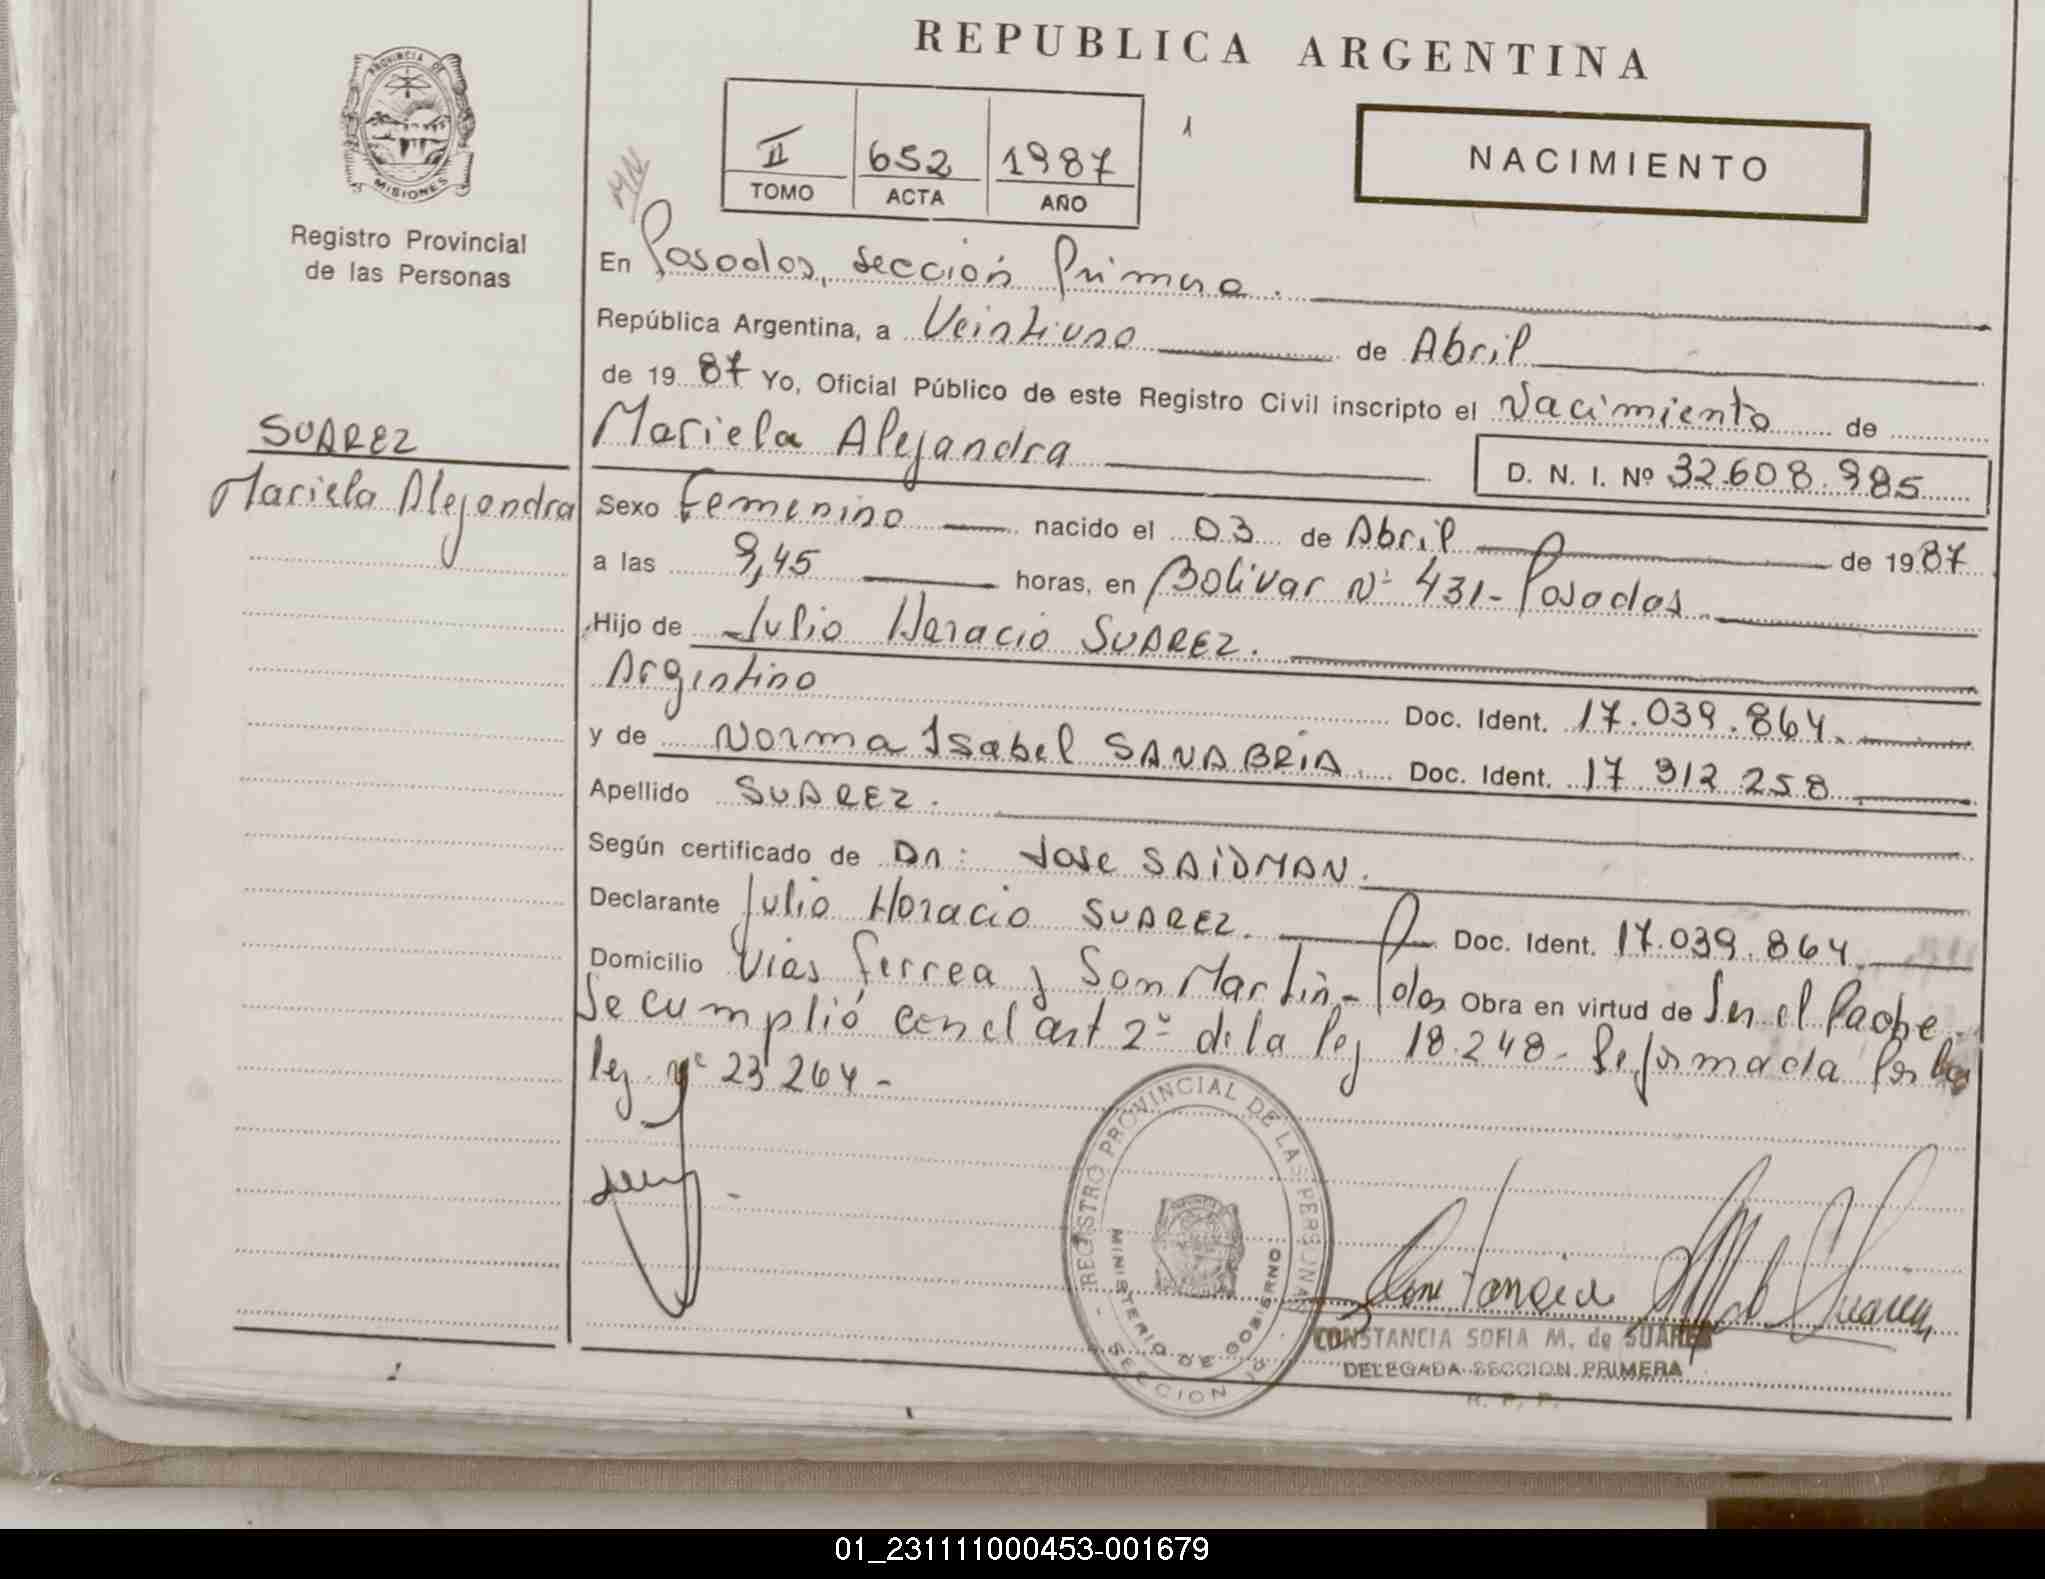 REPUBLICA ARGENTINA
PROVINCIA DE
MISIONES
Registro Provincial
de las Personas
II 652 1987
TOMO ACTA AÑO
NACIMIENTO
En Posadas, sección Primera.
República Argentina, a Veintiuno de Abril
de 1987 Yo, Oficial Público de este Registro Civil inscripto el Nacimiento de
SUAREZ
Mariela Alejandra
Mariela Alejandra
D. N. I. Nº 32.608.985
Sexo Femenino nacido el 03 de Abril de 1987
a las 9,45 horas, en Bolivar Nº 431- Posadas.
Hijo de Julio Horacio SUAREZ.
Argentino Doc. Ident. 17.039.864.
y de Norma Isabel SANABRIA. Doc. Ident. 17 912 258
Apellido SUAREZ.
Según certificado de Dn: Jose SAIDMAN.
Declarante Julio Horacio SUAREZ. Doc. Ident. 17.039.864.
Domicilio Vias ferrea y San Martin - Pdas Obra en virtud de Ser el Padre.
Se cumplió con el art 2º de la ley 18.248- Reformada Por la
ley nº 23 264 -
REGISTRO PROVINCIAL DE LAS PERSONAS
MINISTERIO DE GOBIERNO
SECCION 1ª
CONSTANCIA SOFIA M. de SUAREZ
DELEGADA SECCION PRIMERA
R. P. P.
01_231111000453-001679